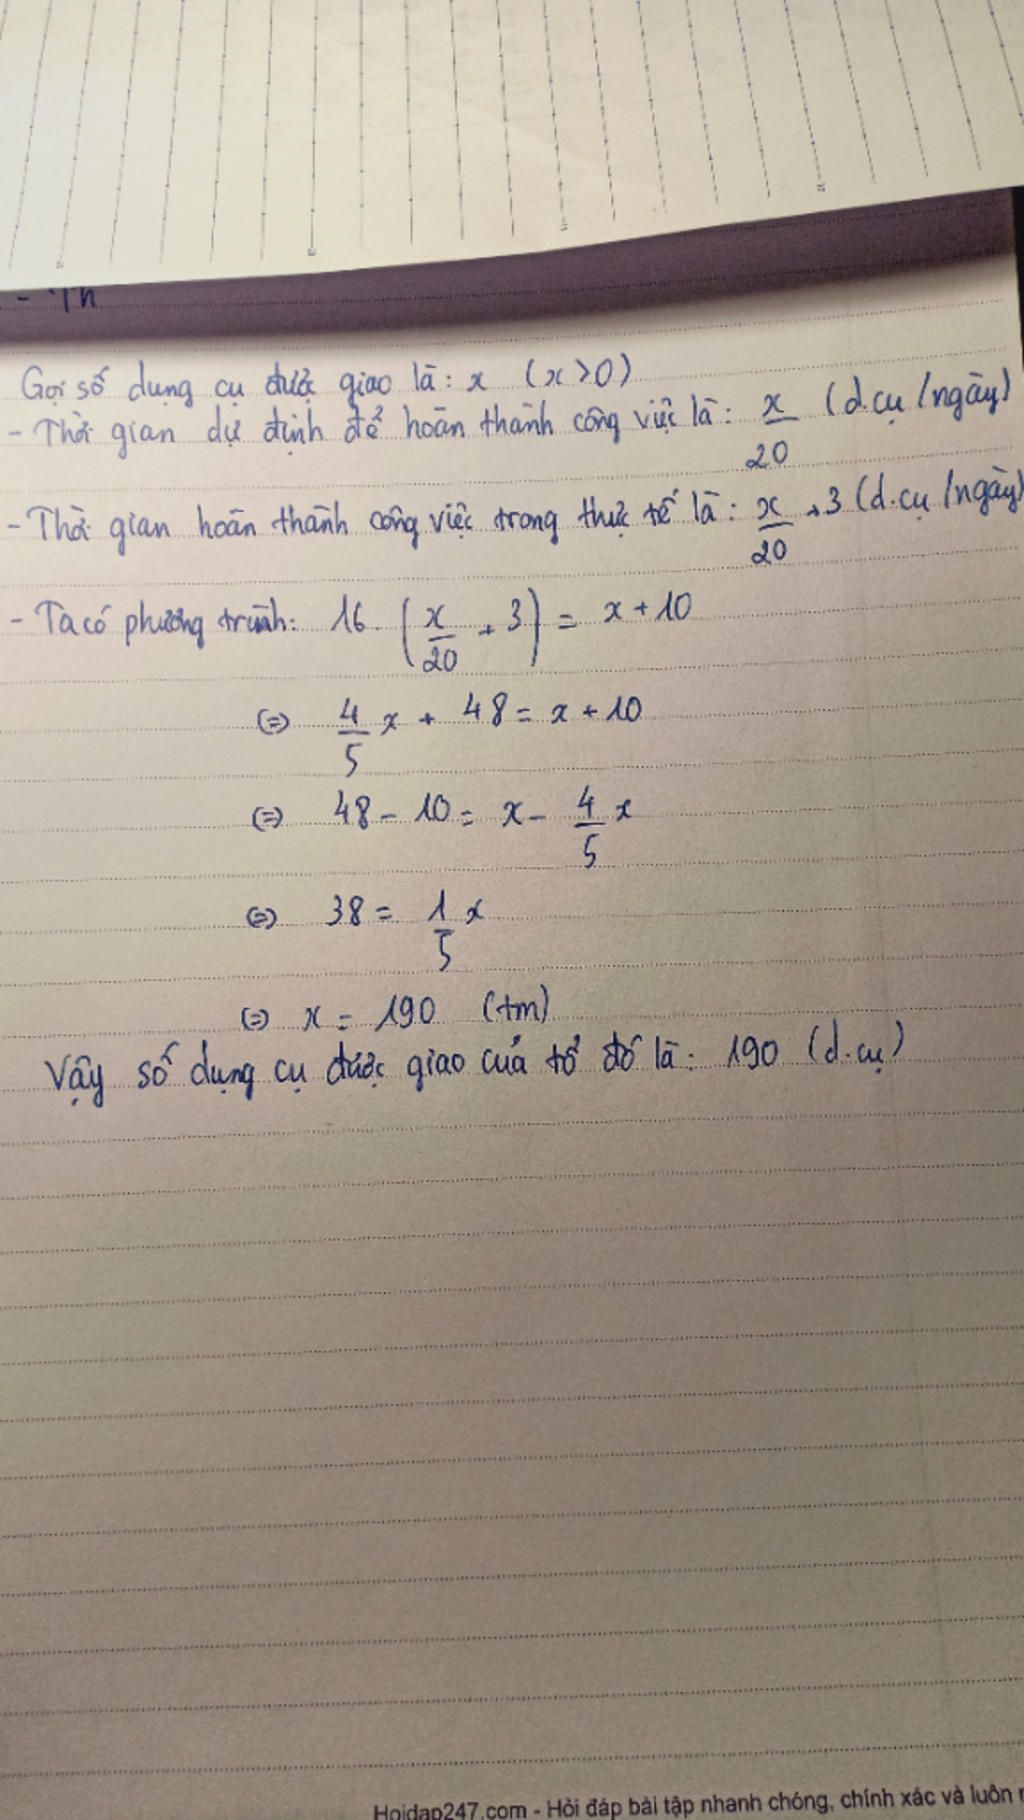 - Th
Gọi số dụng cụ được giao là: x (x>0)
- Thời gian dự định để hoàn thành công việc là: x/20 (d.cụ/ngày)
- Thời gian hoàn thành công việc trong thực tế là: x/20 + 3 (d.cụ/ngày)
- Ta có phương trình: 16. (x/20 + 3) = x + 10
(=) 4/5 x + 48 = x + 10
(=) 48 - 10 = x - 4/5 x
(=) 38 = 1/5 x
(=) x = 190 (tm)
Vậy số dụng cụ được giao của tổ đó là: 190 (d.cụ)
Hoidap247.com - Hỏi đáp bài tập nhanh chóng, chính xác và luôn